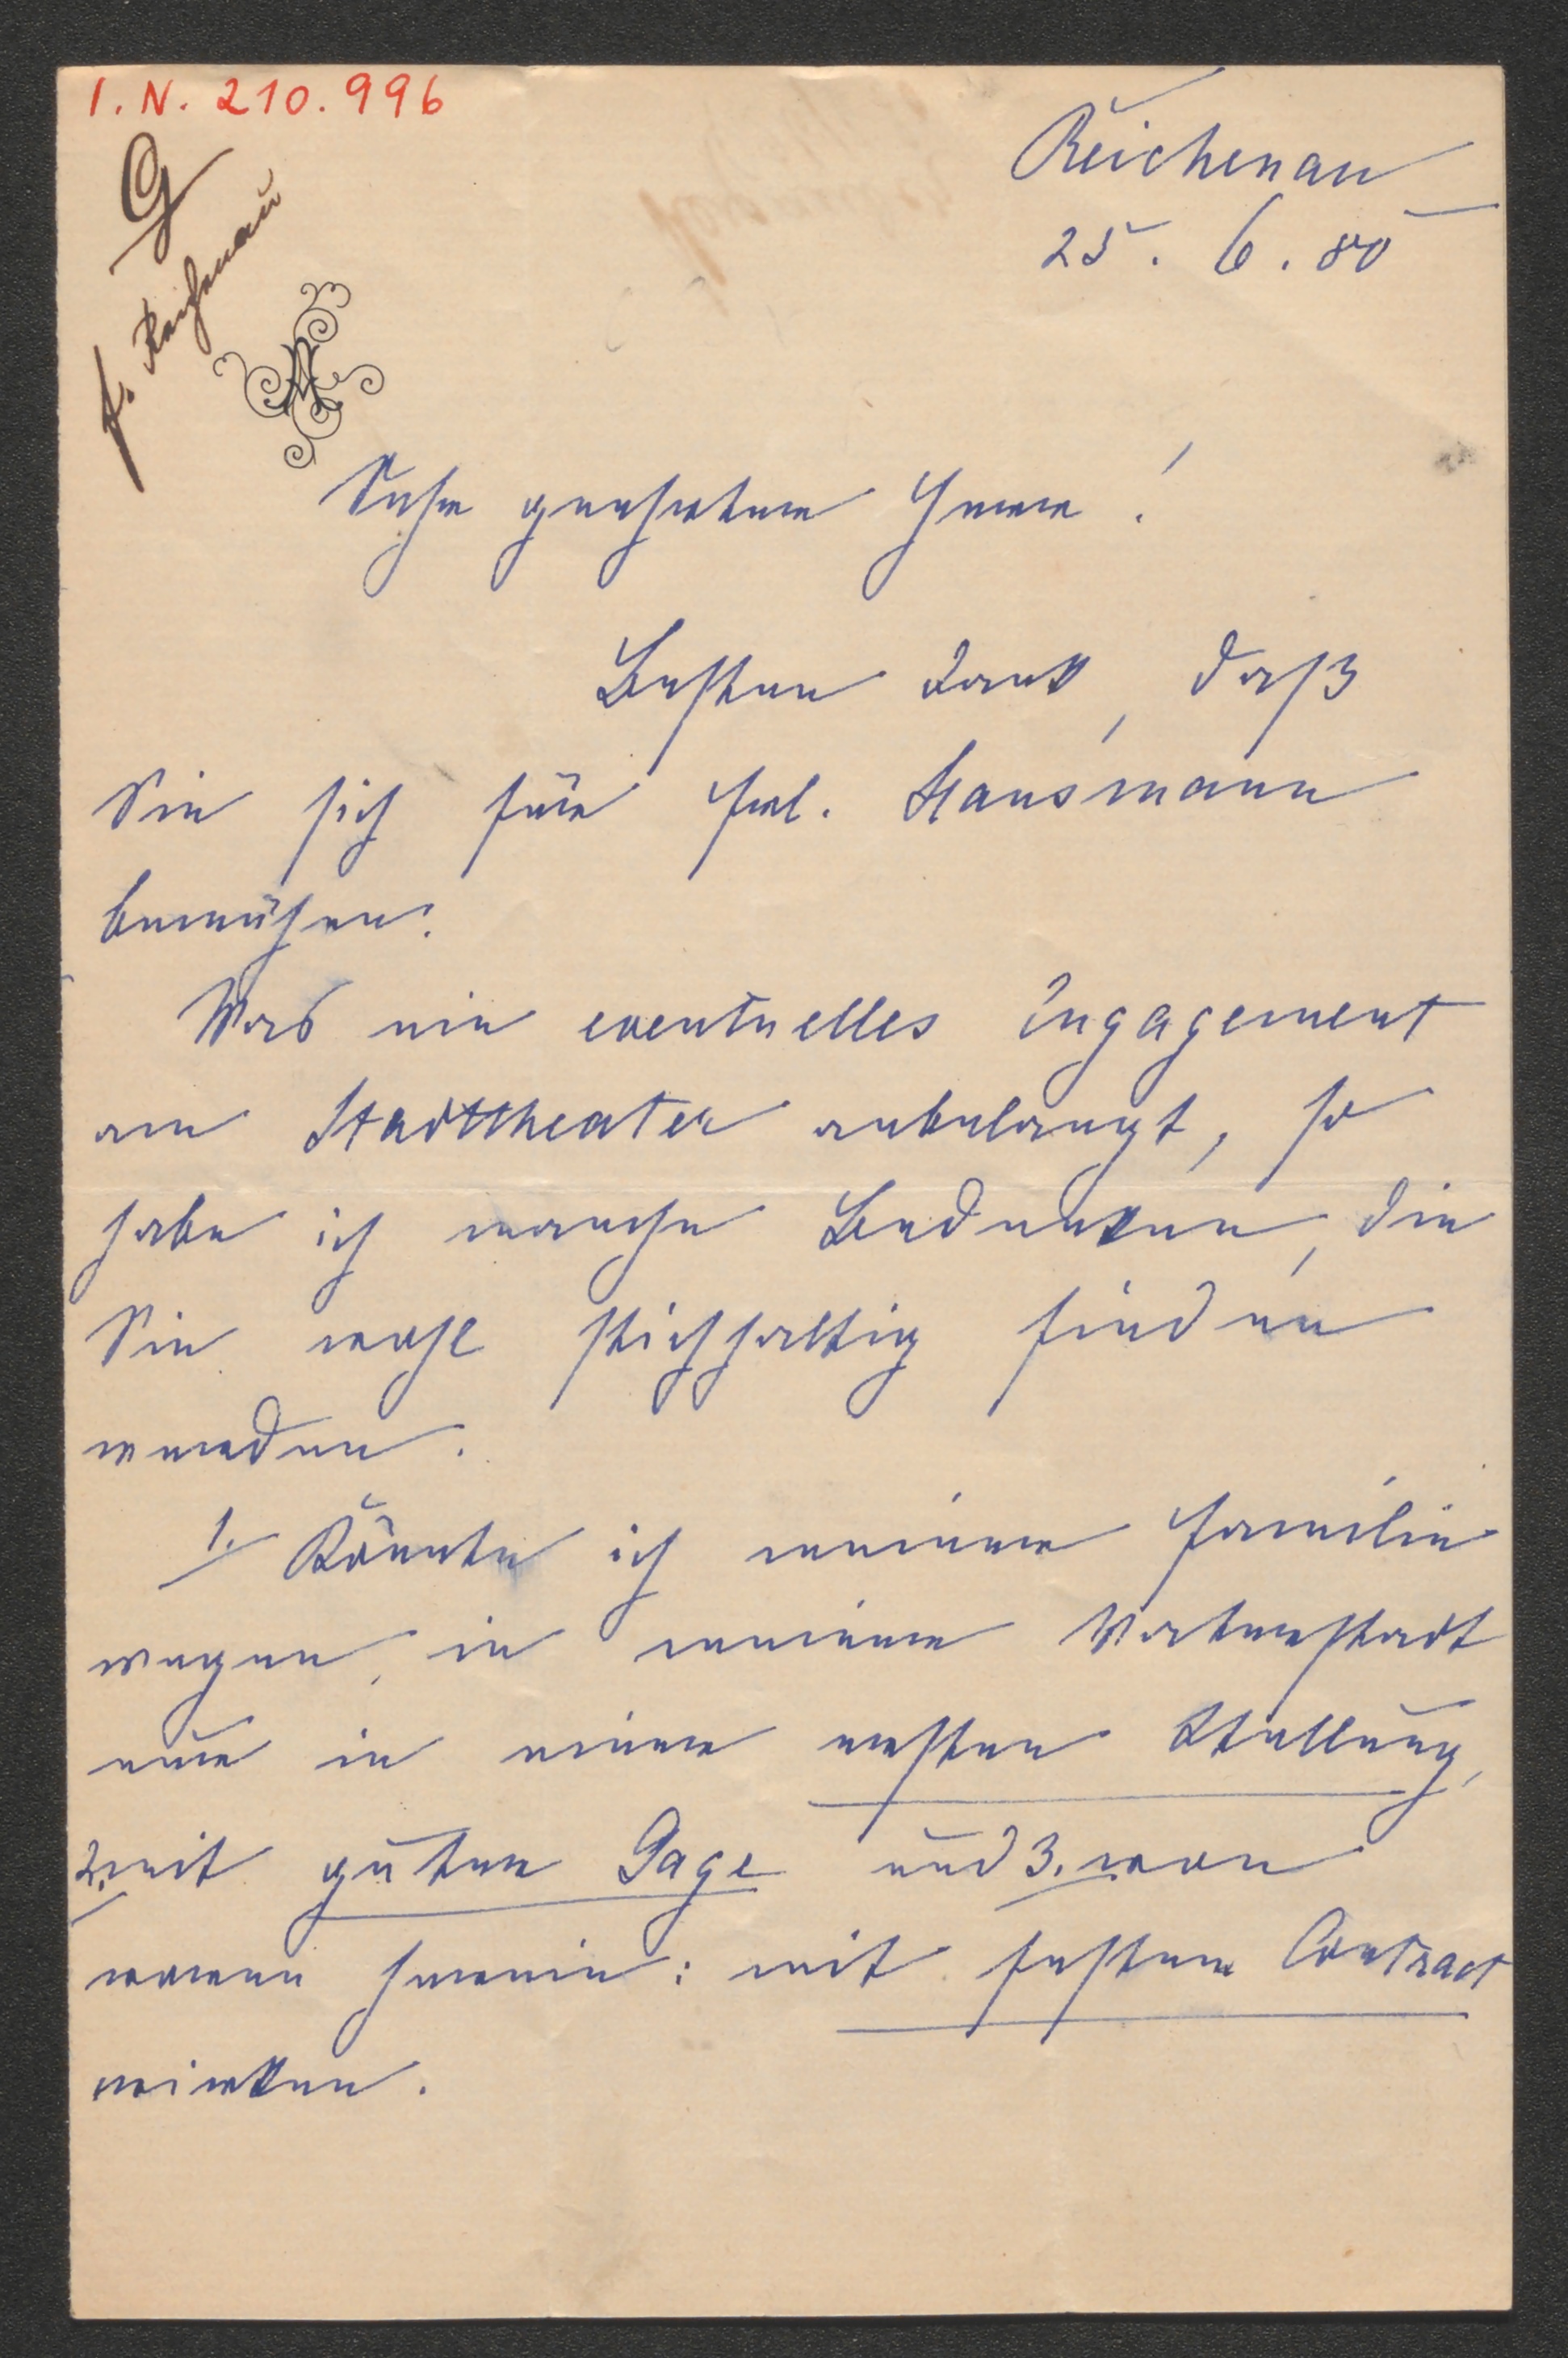 I. N. 210.996
G
Reichenau
25. 6. 80
Sehr geehrter Herr!
Besten Dank, daß
Sie sich für Frl. Hausmann
bemühen.
Was ein eventuelles Engagement
am Stadttheater anbelangt, so
habe ich manche Bedenken, die
Sie wohl stichhaltig finden
werden.
1. Könnte ich meiner Familie
wegen, in meiner Vaterstadt
nur in einer ersten Stellung,
2. mit guter Gage und 3. von
vorne herein: mit festem Contract
wirken.